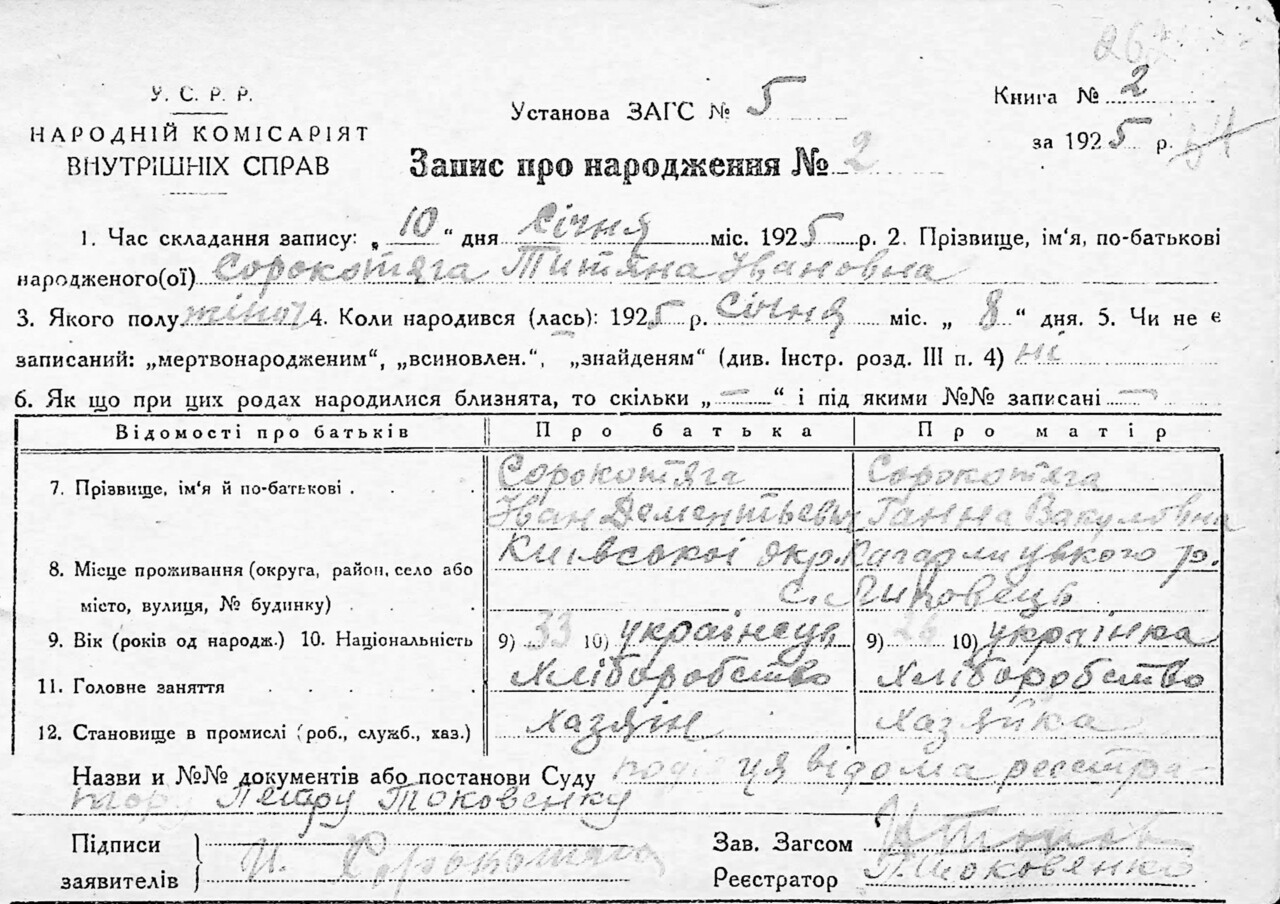 У. С. Р. Р.
НАРОДНІЙ КОМІСАРІЯТ
ВНУТРІШНІХ СПРАВ
Установа ЗАГС № 5
Книга № 2
за 1925 р.
Запис про народження № 2
1. Час складання запису: „10“ дня Січня міс. 1925 р. 2. Прізвище, ім‘я, по-батькові
народженого(ої) Сорокотяга Титяна Івановна
3. Якого полу жіноч 4. Коли народився (лась): 1925 р. Січня міс. „ 8 “ дня. 5. Чи не є
записаний: „мертвонародженим“, „всиновлен.“, „знайденям“ (див. Інстр. розд. III п. 4) ні
6. Як що при цих родах народилися близнята, то скільки „ — “ і під якими №№ записані —
Відомості про батьків Про батька Про матір
7. Прізвище, ім‘я й по-батькові . . . . Сорокотяга Сорокотяга
Іван Дементьевич Ганна Вакуловна
8. Місце проживання (округа, район, село або Київської окр. Кагарлицького р.
місто, вулиця, № будинку) . . . с. Липовець
9. Вік (років од народж.) 10. Національність 9) 33 10) українець 9) 26 10) українка
11. Головне заняття . . . . . Хліборобство Хліборобство
12. Становище в промислі (роб., служб., хаз.) хазяїн хазяйка
Назви и №№ документів або постанови Суду подія ця відома реєстра-
тору Петру Токовенку
Підписи
заявителів
И. Сорокотяга
Зав. Загсом
Реєстратор П. Токовенко